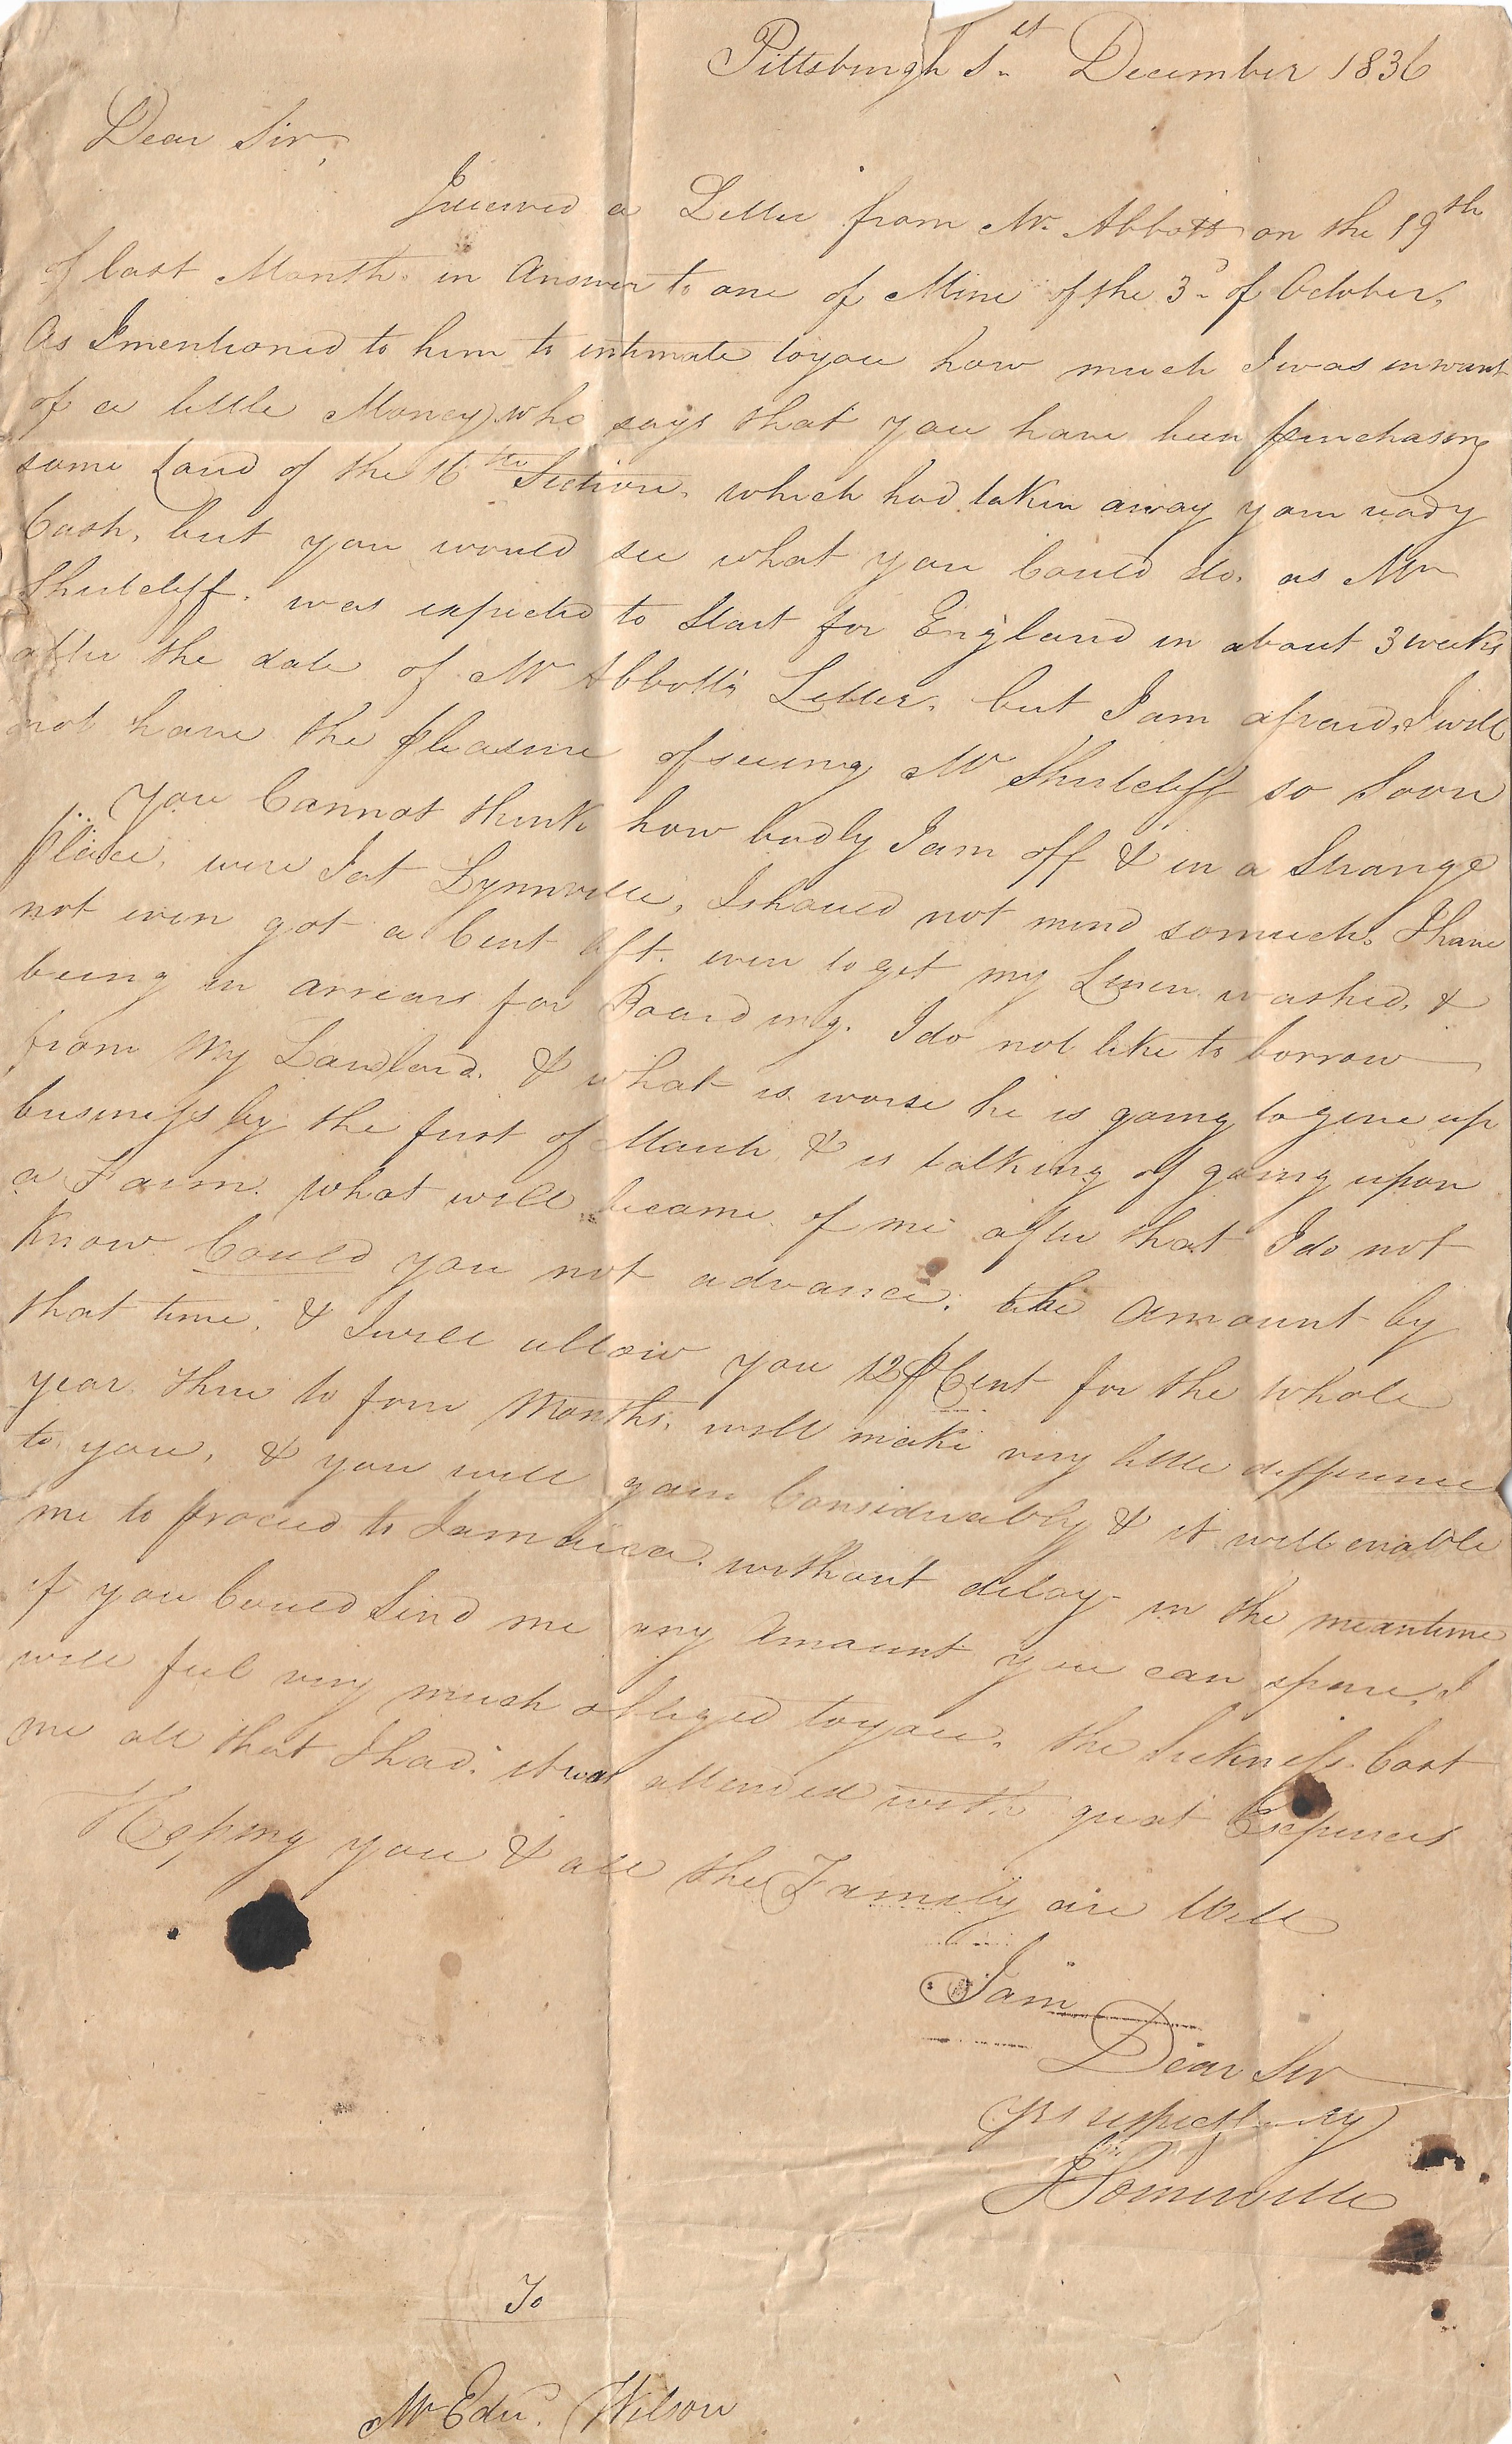 Pittsburgh 1st December 1836
Dear Sir,
I received a Letter from Mr. Abbott on the 19th
of last Month. in Answer to one of Mine of the 3d of October,
As I mentioned to him to intimate to you how much I was in want
of a little Money, who says that you have been purchasing
some Land of the 16th Section. which had taken away your ready
Cash, but you would see what you Could do. as Mr
Shutcliff. was expected to Start for England in about 3 weeks
after the date of Mr Abbott's Letter, but I am afraid, I will
not have the pleasure of seeing Mr Shutcliff so Soon
... You Cannot think how badly I am off & in a Strange
place, were I at Lynnville, I should not mind so much. I have
not even got a Cent left. even to get my Linen washed, &
being in arrears for Boarding. I do not like to borrow
from My Landlord. & what is worse he is going to give up
business by the first of March & is talking of going upon
a Farm. what will become of me after that I do not
Know Could you not advance. the Amount by
that time. & I will allow you 12 ⅌ Cent for the whole
year three to four Months. will make very little difference
to you, & you will gain Considerably & it will enable
me to proceed to Jamaica. without delay - in the meantime
if you Could Send me any Amount you can spare, I
will feel very much obliged to you. the Sickness Cost
me all that I had. it was attended with great Expences
Hoping you & all the Family are Well
I am
Dear Sir
Yrs respectfully
J Somerville
To
Mr Edw. Wilson